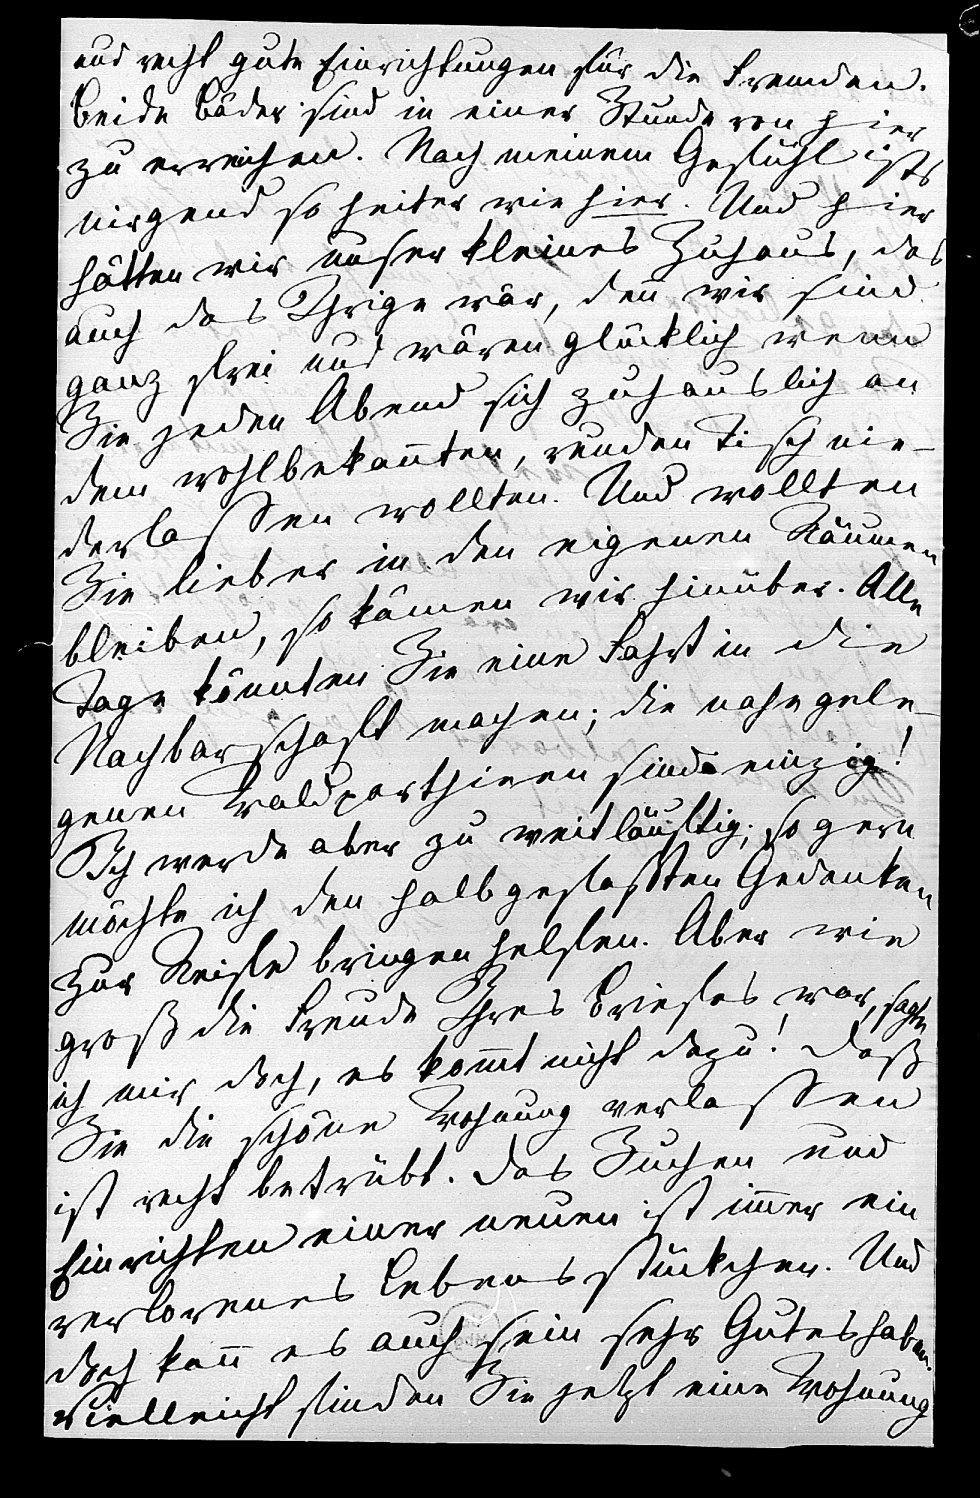 und recht gute Einrichtungen für die Fremden.
Beide Bäder sind in einer Stunde von hier
zu erreichen. Nach meinem Gefühl ists
nirgend so heiter wie hier. Und hier
hätten wir unser kleines Zuhaus, das
auch das Ihrige wär, den̄ wir sind
ganz frei und wären glücklich wenn
Sie jeden Abend sich zuhauslich an
dem wohlbekan̄ten, runden Tisch nie-
derlassen wollten. Und wollten
Sie lieber in den eigenen Räumen
bleiben, so kämen wir hinüber. Alle
Tage könnten Sie eine Fahrt in die
Nachbarschaft machen; die nahe gele-
genen Waldparthieen sind einzig!
Ich werde aber zu weitläuftig; so gern
möchte ich den halbgefaßten Gedanken
zur Reife bringen helfen. Aber wie
groß die Freude Ihres Briefes war, sagte
ich mir doch, es kom̄t nicht dazu! Daß
Sie die schöne Wohnung verlassen
ist recht betrübt. Das Suchen und
Einrichten einer neuen ist im̄er ein
verlorenes Lebensstückchen. Und
doch kan̄ es auch sein sehr Gutes haben.
Vielleicht finden Sie jetzt eine Wohnung